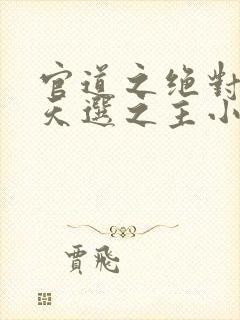 官道之绝對
天選之主小
賈飛